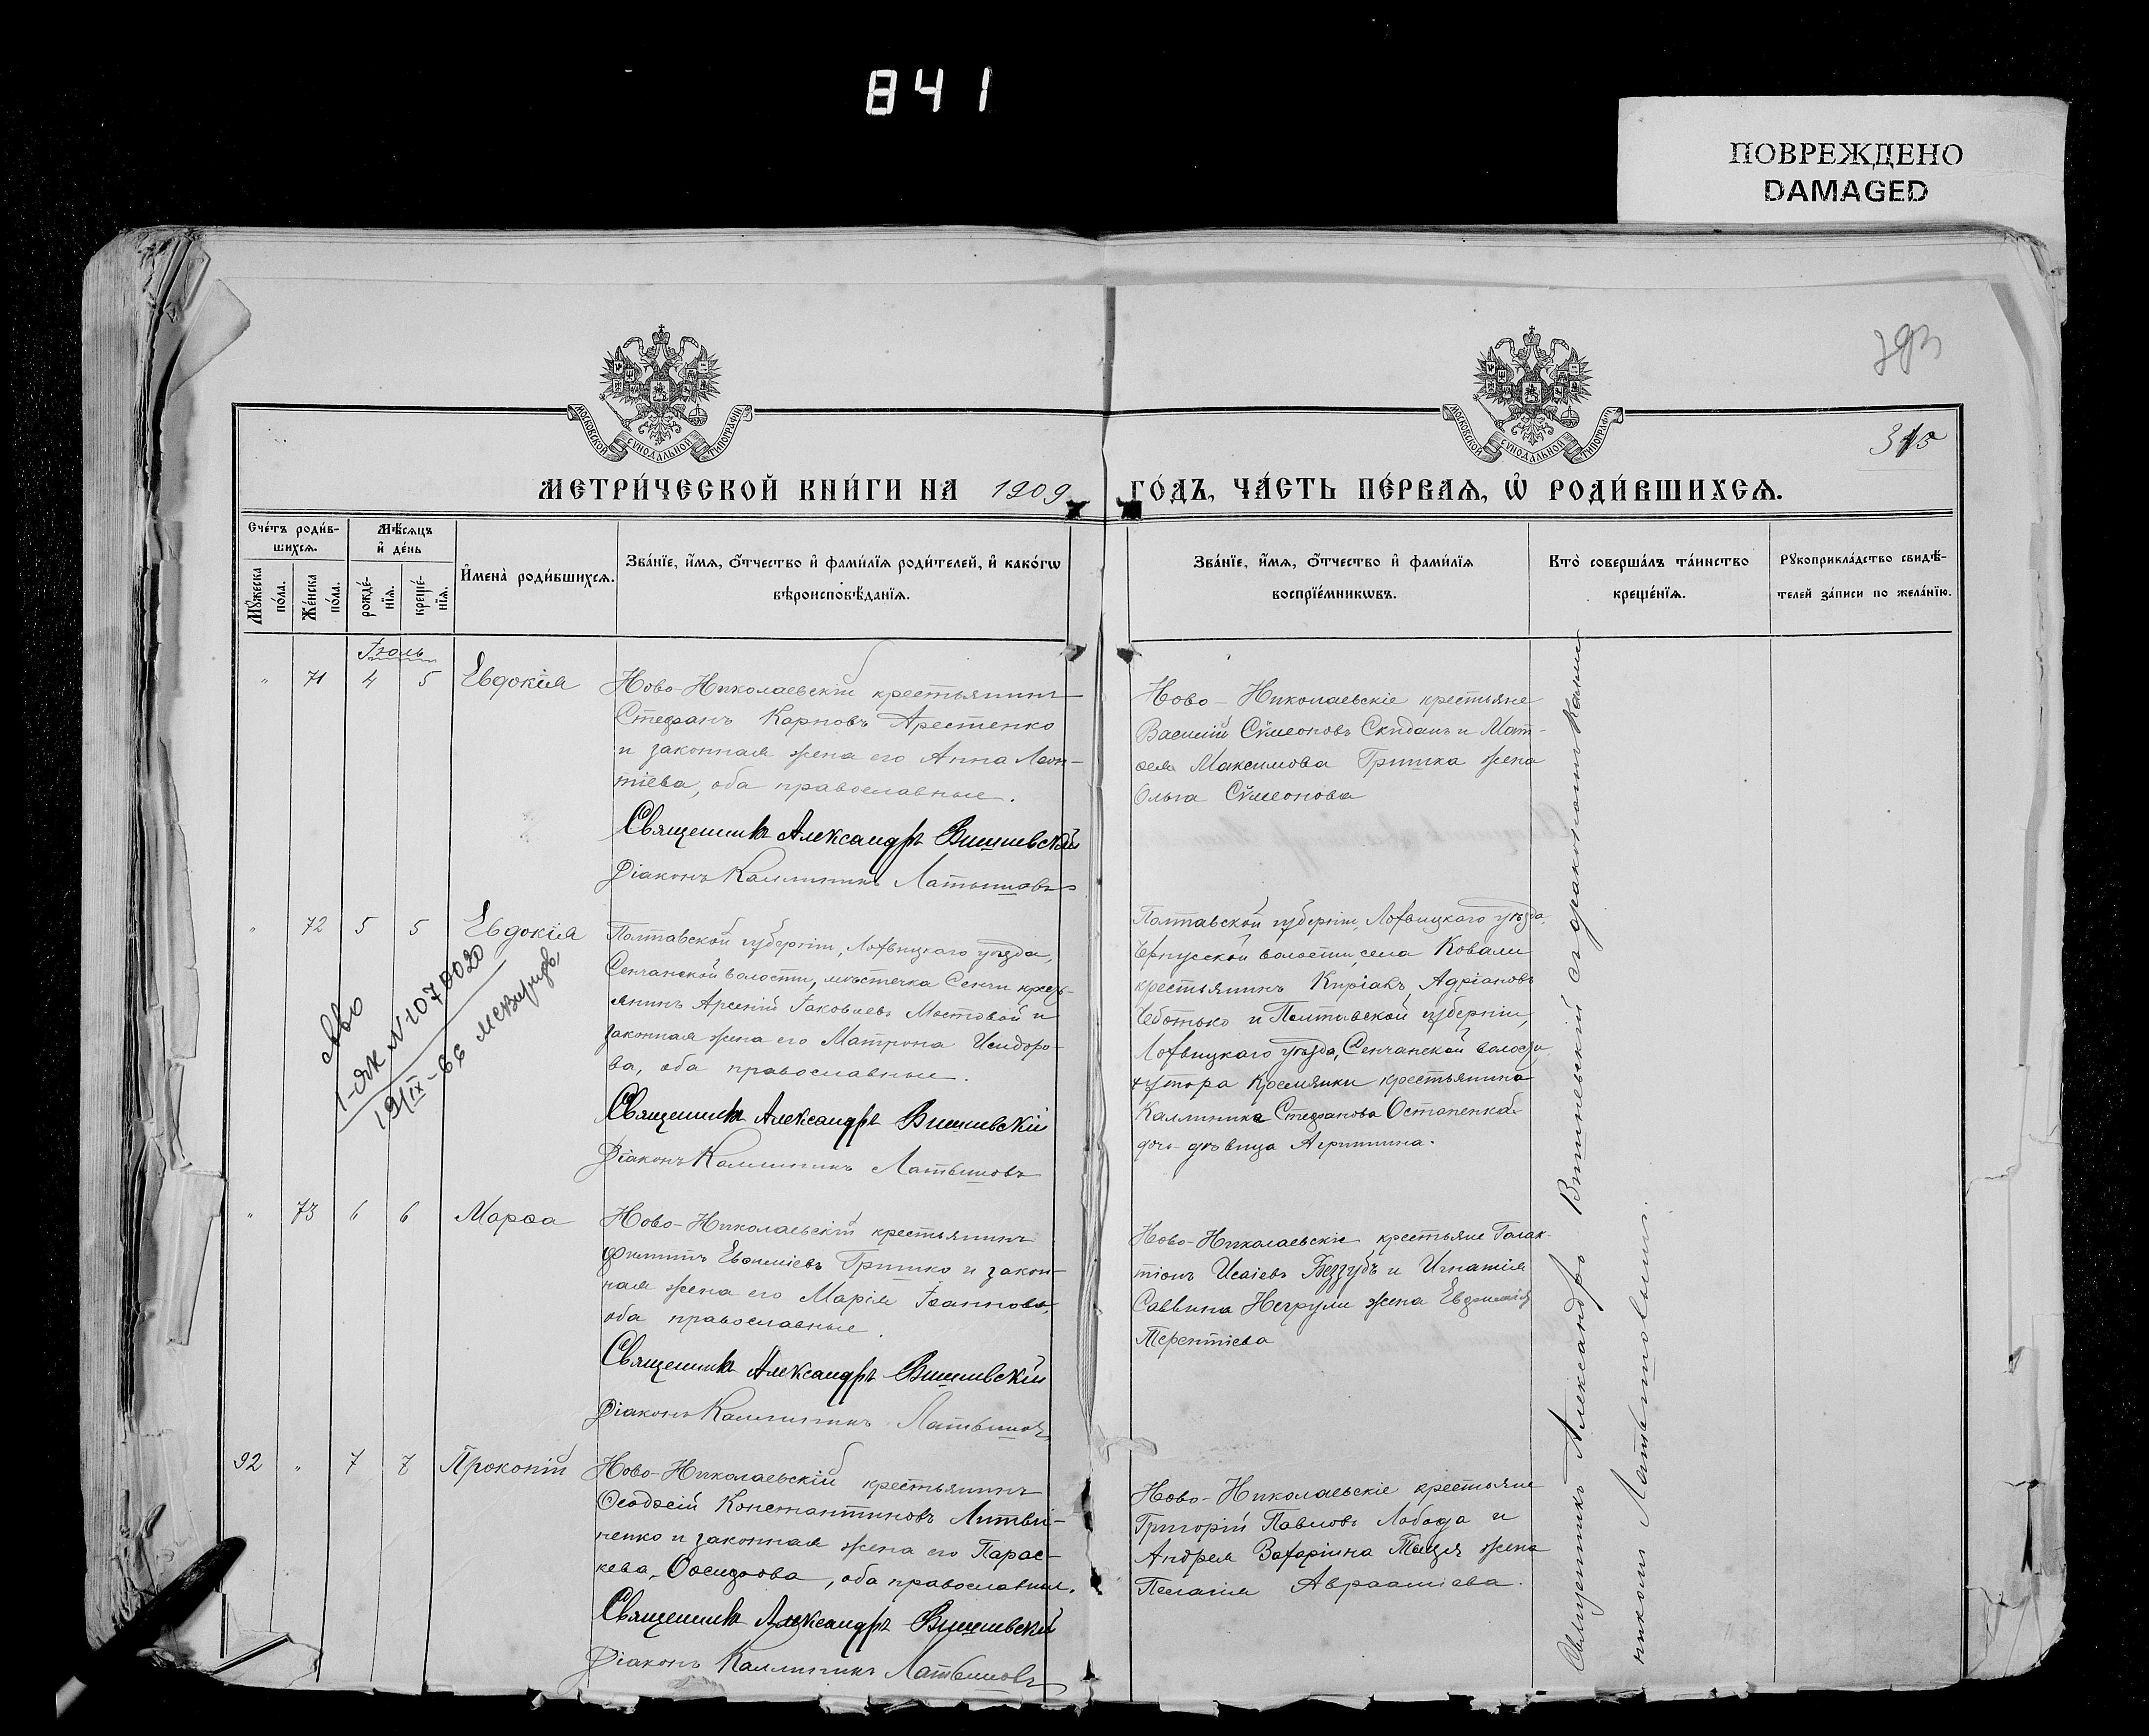 841
ПОВРЕЖДЕНО
DAMAGED
393
315
МОСКОВСКОЙ СѴНОДАЛЬНОЙ ТИПОГРАФІИ
МОСКОВСКОЙ СѴНОДАЛЬНОЙ ТИПОГРАФІИ
МЕТРИ́ЧЕСКОЙ КНИ́ГИ НА 1909 ГО́ДЪ, ЧА́СТЬ ПЕ́РВАѦ, Ѡ҆ РОДИ́ВШИХСѦ.
Счетъ роди́в-
шихсѧ.
Мꙋ́жеска по́ла.
Же́нска по́ла.
Мѣ́сѧцъ
и҆ де́нь
рожде́-
нїѧ.
креще́-
нїѧ.
И҆мена̀ роди́вшихсѧ.
Зва́нїе, и҆́мѧ, ѻ҆́тчество и҆ фами́лїѧ роди́телей, и҆ како́гѡ
вѣроисповѣ́данїѧ.
Зва́нїе, и҆́мѧ, ѻ҆́тчество и҆ фами́лїѧ
воспрїе́мникѡвъ.
Кто̀ соверша́лъ та́инство
креще́нїѧ.
Рꙋкоприкла́дство свидѣ́-
телей за́писи по жела́нїю.
Іюль
" 71 4 5 Евдокія
Ново-Николаевскій крестьянинъ
Стефанъ Карповъ Арестенко
и законная жена его Анна Леон-
тіева, оба православные.
Священникъ Александръ Вишневскій
Діаконъ Каллиникъ Латышовъ
Ново-Николаевскіе крестьяне
Василій Сѵмеоновъ Скиданъ и Мат-
ѳея Максимова Гришка жена
Ольга Сѵмеонова
" 72 5 5 Евдокія
Полтавской губерніи, Лохвицкаго уѣзда,
Сенчанской волости, мѣстечка Сенчи кресть-
янинъ Арсеній Іаковлевъ Мостовой и
законная жена его Матрона Исидоро-
ва, оба православные.
Священникъ Александръ Вишневскій
Діаконъ Каллиникъ Латышовъ
Полтавской губерніи, Лохвицкаго уѣзда,
волости, села Ковали
крестьянинъ Киріакъ Адріановъ
Чеботько и Полтавской губерніи,
Лохвицкаго уѣзда, Сенчанской волости
хутора крестьянина
Каллиника Стефанова Остапенка
дочь дѣвица Агриппина.
1-ЯК №1070020
" 73 6 6 Марѳа
Ново-Николаевскій крестьянинъ
Филиппъ Евѳиміевъ Гришко и закон-
ная жена его Марія Іоаннова,
оба православные.
Священникъ Александръ Вишневскій
Діаконъ Каллиникъ Латышовъ
Ново-Николаевскіе крестьяне Галак-
тіонъ Исаіевъ Беззубъ и Игнатія
Саввина Негрули жена Евдокія
Терентіева
92 " 7 7 Прокопій
Ново-Николаевскій крестьянинъ
Ѳеодосій Константиновъ Литви-
ненко и законная жена его Парас-
кева, оба православные.
Священникъ Александръ Вишневскій
Діаконъ Каллиникъ Латышовъ
Ново-Николаевскіе крестьяне
Григорій Павловъ Лобода и
Андрея Захаріина жена
Пелагія Авраамiева.
Священникъ Александръ Вишневскій съ діакономъ Калли-
никомъ Латышовымъ.